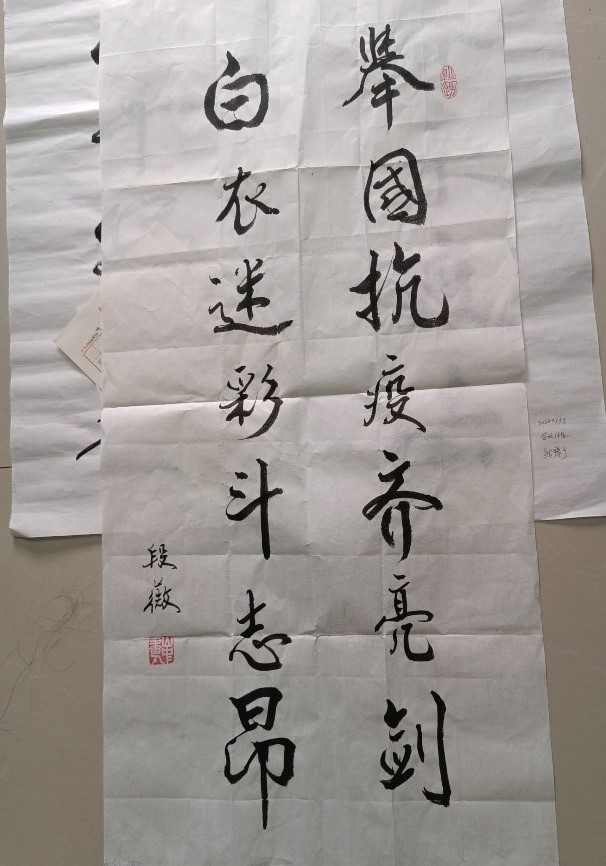 舉國抗疫齐亮剑
白衣迷彩斗志昂
段薇